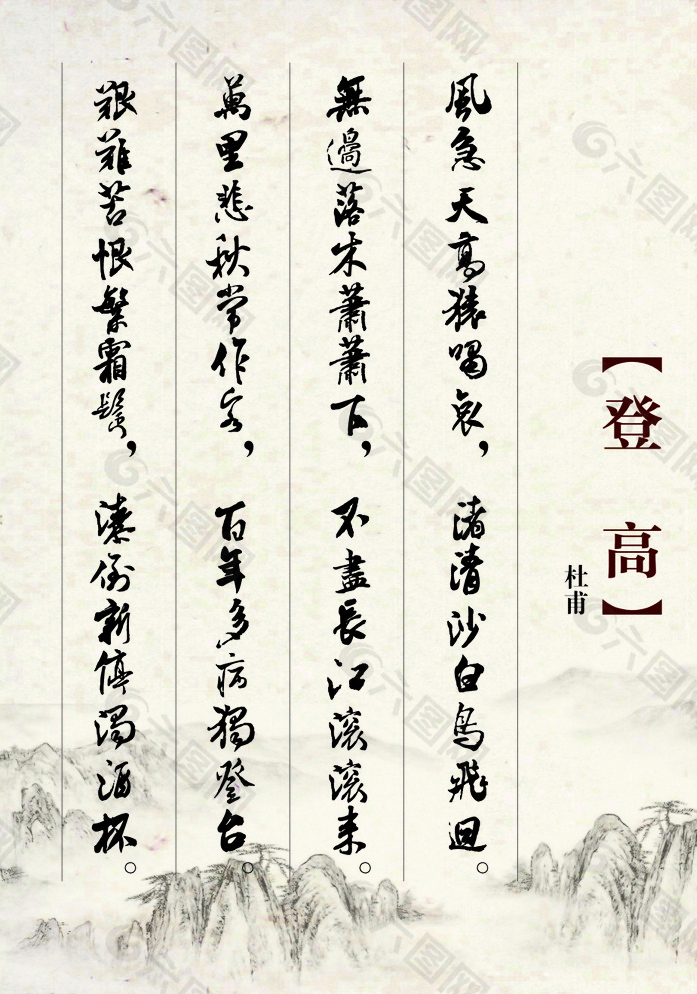 【登高】
杜甫
風急天高猿嘯哀，渚清沙白鳥飛迴。
無邊落木蕭蕭下，不盡長江滾滾來。
萬里悲秋常作客，百年多病獨登台。
艱難苦恨繁霜鬢，潦倒新停濁酒杯。
六图网